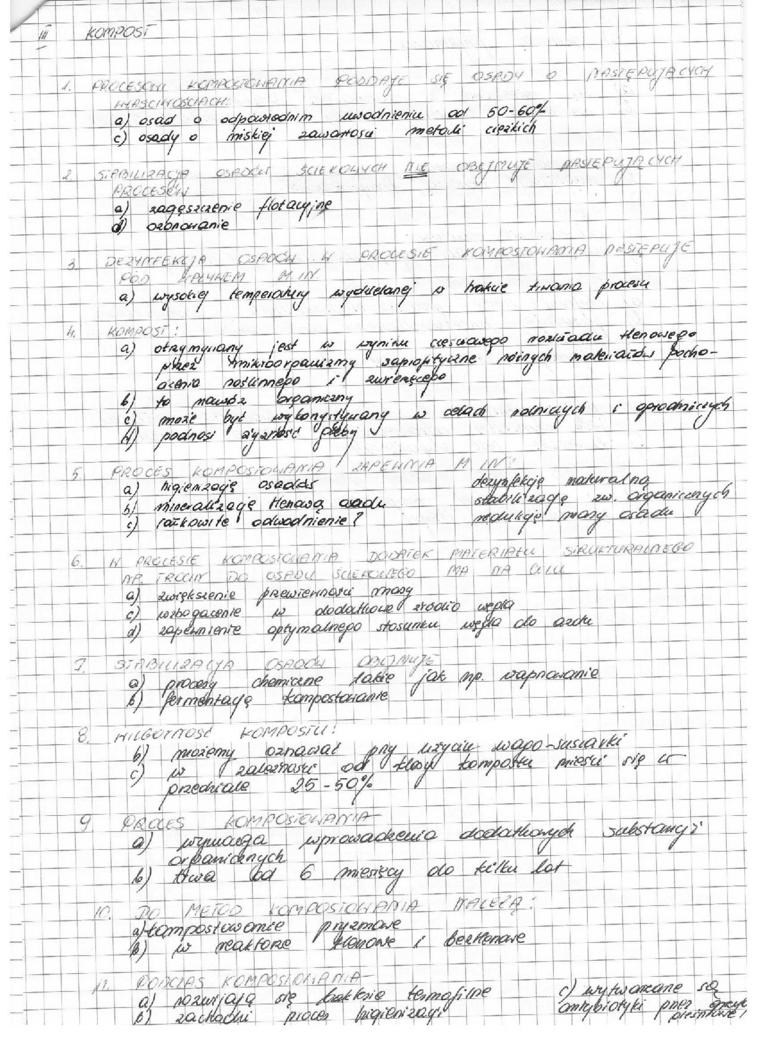 III KOMPOST
1. PROCESOWI KOMPOSTOWANIA PODDAJE SIĘ OSADY O NASTĘPUJĄCYCH
WŁAŚCIWOŚCIACH:
a) osad o odpowiednim uwodnieniu od 50-60%
c) osady o niskiej zawartości metali ciężkich
2. STABILIZACJA OSADÓW ŚCIEKOWYCH NIE OBEJMUJE NASTĘPUJĄCYCH
PROCESÓW
a) zagęszczenie flotacyjne
d) ozonowanie
3. DEZYNFEKCJA OSADÓW W PROCESIE KOMPOSTOWANIA NASTĘPUJE
POD WPŁYWEM M.IN
a) wysokiej temperatury wydzielanej w trakcie trwania procesu
4. KOMPOST:
a) otrzymywany jest w wyniku częściowego rozkładu tlenowego
przez mikroorganizmy saprofityczne różnych materiałów pocho-
dzenia roślinnego i zwierzęcego
b) to nawóz organiczny
c) może być wykorzystywany w celach rolniczych i ogrodniczych
d) podnosi żyzność gleby
5. PROCES KOMPOSTOWANIA ZAPEWNIA M IN:
a) higienizację osadów dezynfekcję naturalną
b) mineralizację tlenową osadu stabilizację zw. organicznych
c) całkowite odwodnienie? redukcję masy osadu
6. W PROCESIE KOMPOSTOWANIA DODATEK MATERIAŁU STRUKTURALNEGO
NP. TROCIN DO OSADU ŚCIEKOWEGO MA NA CELU
a) zwiększenie przewiewności masy
c) wzbogacenie w dodatkowe źródło węgla
d) zapewnienie optymalnego stosunku węgla do azotu
7. STABILIZACJA OSADÓW OBEJMUJE
a) procesy chemiczne takie jak np. wapnowanie
b) fermentację kompostowanie
8. WILGOTNOŚĆ KOMPOSTU:
b) możemy oznaczać przy użyciu wago-suszarki
c) w zależności od klasy kompostu mieści się w
przedziale 25-50%
9. PROCES KOMPOSTOWANIA
a) wymaga wprowadzenia dodatkowych substancji
organicznych
b) trwa od 6 miesięcy do kilku lat
10. DO METOD KOMPOSTOWANIA NALEŻĄ:
a) kompostowanie pryzmowe
b) w reaktorze tlenowe i beztlenowe
11. PODCZAS KOMPOSTOWANIA
a) rozwijają się bakterie termofilne c) wytwarzane są
b) zachodzi proces higienizacji antybiotyki przez grzyby
pleśniowe